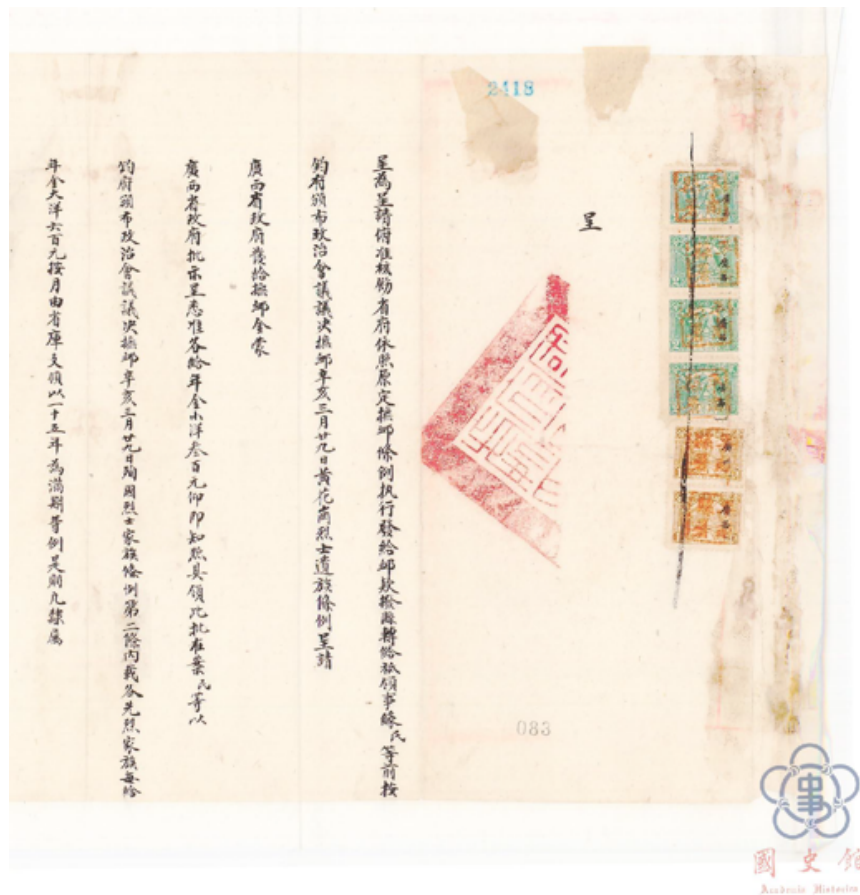 2418
呈
呈為呈請俯准核飭省府依照原定撫卹條例執行發給卹款撥滙轉給祗領事緣氏等前按
鈞府頒布政治會議議決撫卹辛亥三月廿九日黃花崗烈士遺族條例呈請
廣西省政府發給撫卹金蒙
廣西省政府批示呈悉准各給年金小洋叁百元仰即知照具領此批在案氏等以
鈞府頒布政治會議議決撫卹辛亥三月廿九日殉國烈士家族條例第二條內載各先烈家族每給
年金大洋六百元按月由省庫支領以一十五年為滿期等例是則凡隸屬
083
國史館
Academia Historica